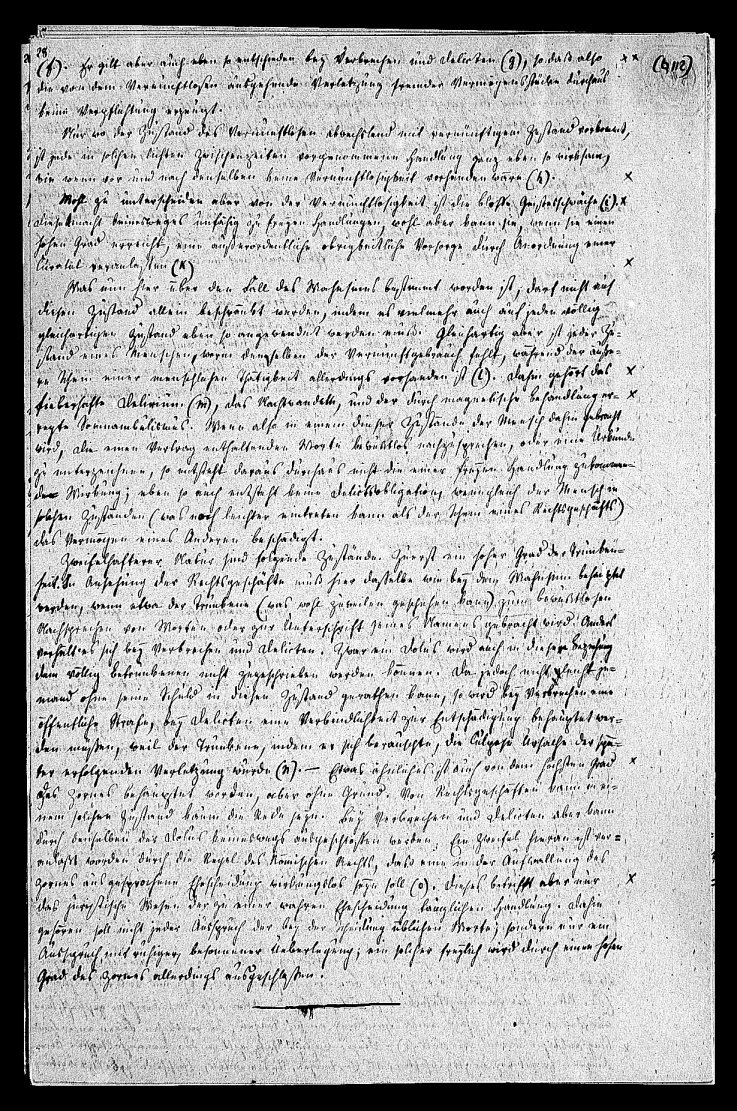 28
(f). Er gilt aber auch eben so entschieden bey Verbrechen und Delicten (g), so daß also × × (§ 112)
die von dem Vernunftlosen ausgehende Verletzung fremder Vermögensstücke durchaus
keine Verpflichtung erzeugt.
Nur wo der Zustand des Vernunftlosen abwechselnd mit vernünftigem Zustand vorkommt,
ist jede in solchen lichten Zwischenzeiten vorgenommene Handlung ganz eben so wirksam,
wie wenn vor und nach denselben keine Vernunftlosigkeit vorhanden wäre (h). ×
Wohl zu unterscheiden aber von der Vernunftlosigkeit ist die bloße Geistesschwäche (i). ×
Diese macht keinesweges unfähig zu freyen Handlungen, wohl aber kann sie, wenn sie einen
hohen Grad erreicht, eine außerordentliche obrigkeitliche Vorsorge durch Anordnung einer
Curatel veranlassen (k) ×
Was nun hier über den Fall des Wahnsinns bestimmt worden ist, darf nicht auf
diesen Zustand allein beschränkt werden, indem es vielmehr auch auf jeden völlig
gleichartigen Zustand eben so angewendet werden muß. Gleichartig aber ist jeder Zu-
stand eines Menschen, worin demselben der Vernunftgebrauch fehlt, während der äuße-
re Schein einer menschlichen Thätigkeit allerdings vorhanden ist (l). Dahin gehört das ×
fieberhafte Delirium (m), das Nachtwandeln, und der durch magnetische Behandlung er- ×
regte Somnambulismus. Wenn also in einem dieser Zustände der Mensch dahin gebracht
wird, die einen Vertrag enthaltenden Worte bewußtlos nachzusprechen, oder eine Urkunde
zu unterzeichnen, so entsteht daraus durchaus nicht die einer freyen Handlung zukommen-
de Wirkung; eben so auch entsteht keine Delictsobligation, wenn gleich der Mensch in
solchen Zuständen (was noch leichter eintreten kann als der Schein eines Rechtsgeschäfts)
das Vermögen eines Anderen beschädigt.
Zweifelhafterer Natur sind folgende Zustände. Zuerst ein hoher Grad der Trunken-
heit. In Ansehung der Rechtsgeschäfte muß hier dasselbe wie bey dem Wahnsinn behauptet
werden, wenn etwa der Trunkene (was wohl zuweilen geschehen kann) zum bewußtlosen
Nachsprechen von Worten oder zur Unterschrift seines Namens gebracht wird. Anders
verhält es sich bey Verbrechen und Delicten. Zwar ein Dolus wird auch in dieser Beziehung
dem völlig Betrunkenen nicht zugeschrieben werden können. Da jedoch nicht leicht je-
mand ohne seine Schuld in diesen Zustand gerathen kann, so wird bey Verbrechen eine
öffentliche Strafe, bey Delicten eine Verbindlichkeit zur Entschädigung behauptet wer-
den müssen, weil der Trunkene, indem er sich berauschte, die culpose Ursache der spä-
ter erfolgenden Verletzung wurde (n). — Etwas ähnliches ist auch von dem höchsten Grad ×
des Zornes behauptet worden, aber ohne Grund. Von Rechtsgeschäften kann in ei-
nem solchen Zustand kaum die Rede seyn. Bey Verbrechen und Delicten aber kann
durch denselben der Dolus keineswegs ausgeschlossen werden. Ein Zweifel hieran ist ver-
anlaßt worden durch die Regel des Römischen Rechts, daß eine in der Aufwallung des
Zornes ausgesprochene Ehescheidung wirkungslos seyn soll (o). Dieses betrifft aber nur ×
das juristische Wesen der zu einer wahren Ehescheidung tauglichen Handlung. Dahin
gehören soll nicht jeder Ausspruch der bey der Scheidung üblichen Worte, sondern nur ein
Ausspruch mit ruhiger, besonnener Ueberlegung; ein solcher freylich wird durch einen hohen
Grad des Zornes allerdings ausgeschlossen.